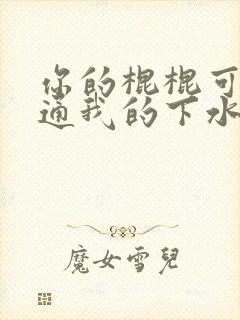 你的棍棍可
通我的下水
魔女雪兒